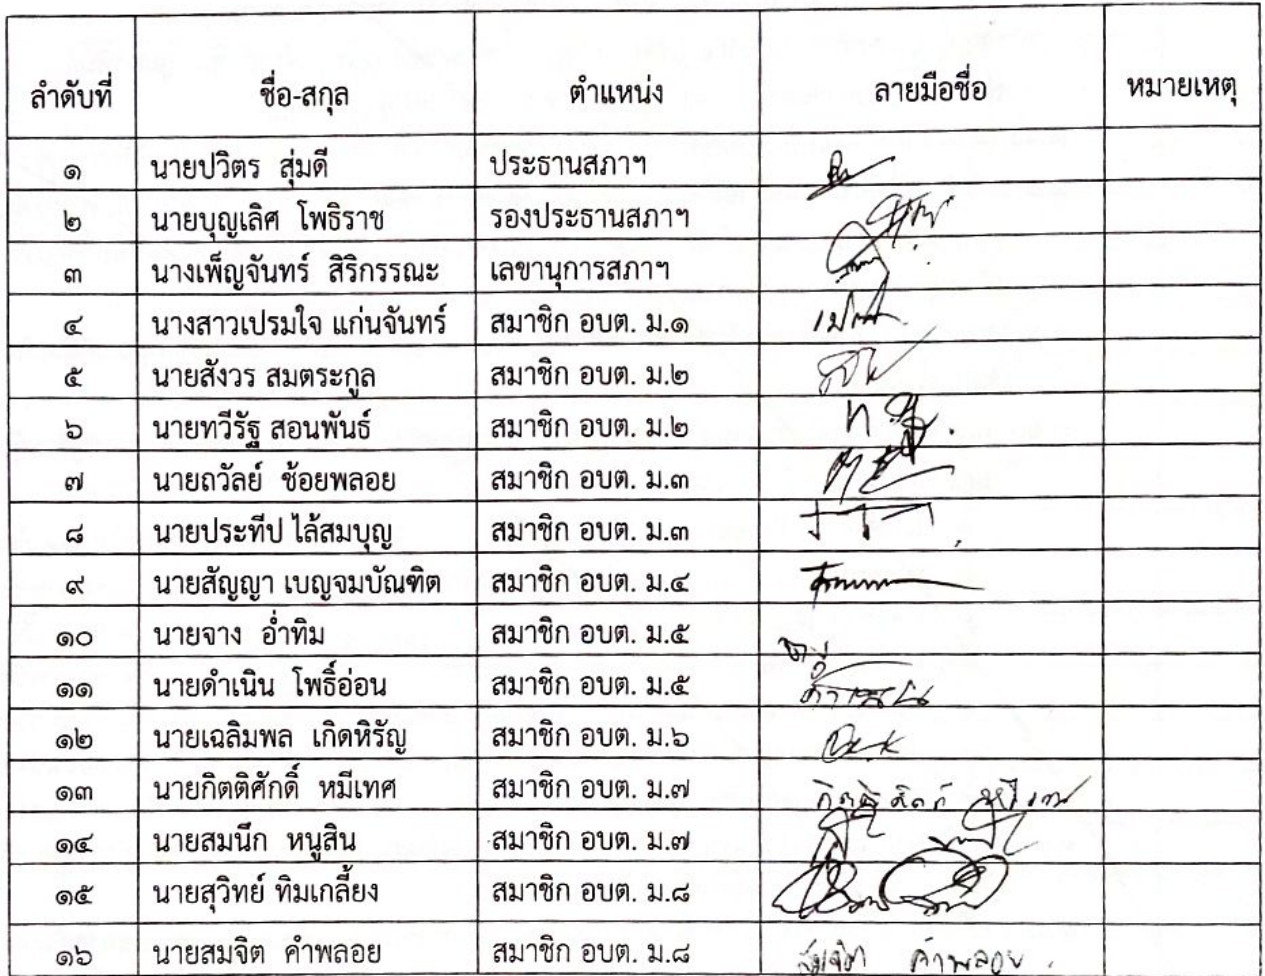 ลำดับที่ ชื่อ-สกุล ตำแหน่ง ลายมือชื่อ หมายเหตุ
๑ นายปวิตร สุ่มดี ประธานสภาฯ
๒ นายบุญเลิศ โพธิราช รองประธานสภาฯ
๓ นางเพ็ญจันทร์ สิริกรรณะ เลขานุการสภาฯ
๔ นางสาวเปรมใจ แก่นจันทร์ สมาชิก อบต. ม.๑
๕ นายสังวร สมตระกูล สมาชิก อบต. ม.๒
๖ นายทวีรัฐ สอนพันธ์ สมาชิก อบต. ม.๒
๗ นายถวัลย์ ช้อยพลอย สมาชิก อบต. ม.๓
๘ นายประทีป ไล้สมบุญ สมาชิก อบต. ม.๓
๙ นายสัญญา เบญจมบัณฑิต สมาชิก อบต. ม.๔
๑๐ นายจาง อ่ำทิม สมาชิก อบต. ม.๕
๑๑ นายดำเนิน โพธิ์อ่อน สมาชิก อบต. ม.๕
๑๒ นายเฉลิมพล เกิดหิรัญ สมาชิก อบต. ม.๖
๑๓ นายกิตติศักดิ์ หมีเทศ สมาชิก อบต. ม.๗
๑๔ นายสมนึก หนูสิน สมาชิก อบต. ม.๗
๑๕ นายสุวิทย์ ทิมเกลี้ยง สมาชิก อบต. ม.๘
๑๖ นายสมจิต คำพลอย สมาชิก อบต. ม.๘ สมจิต คำพลอย